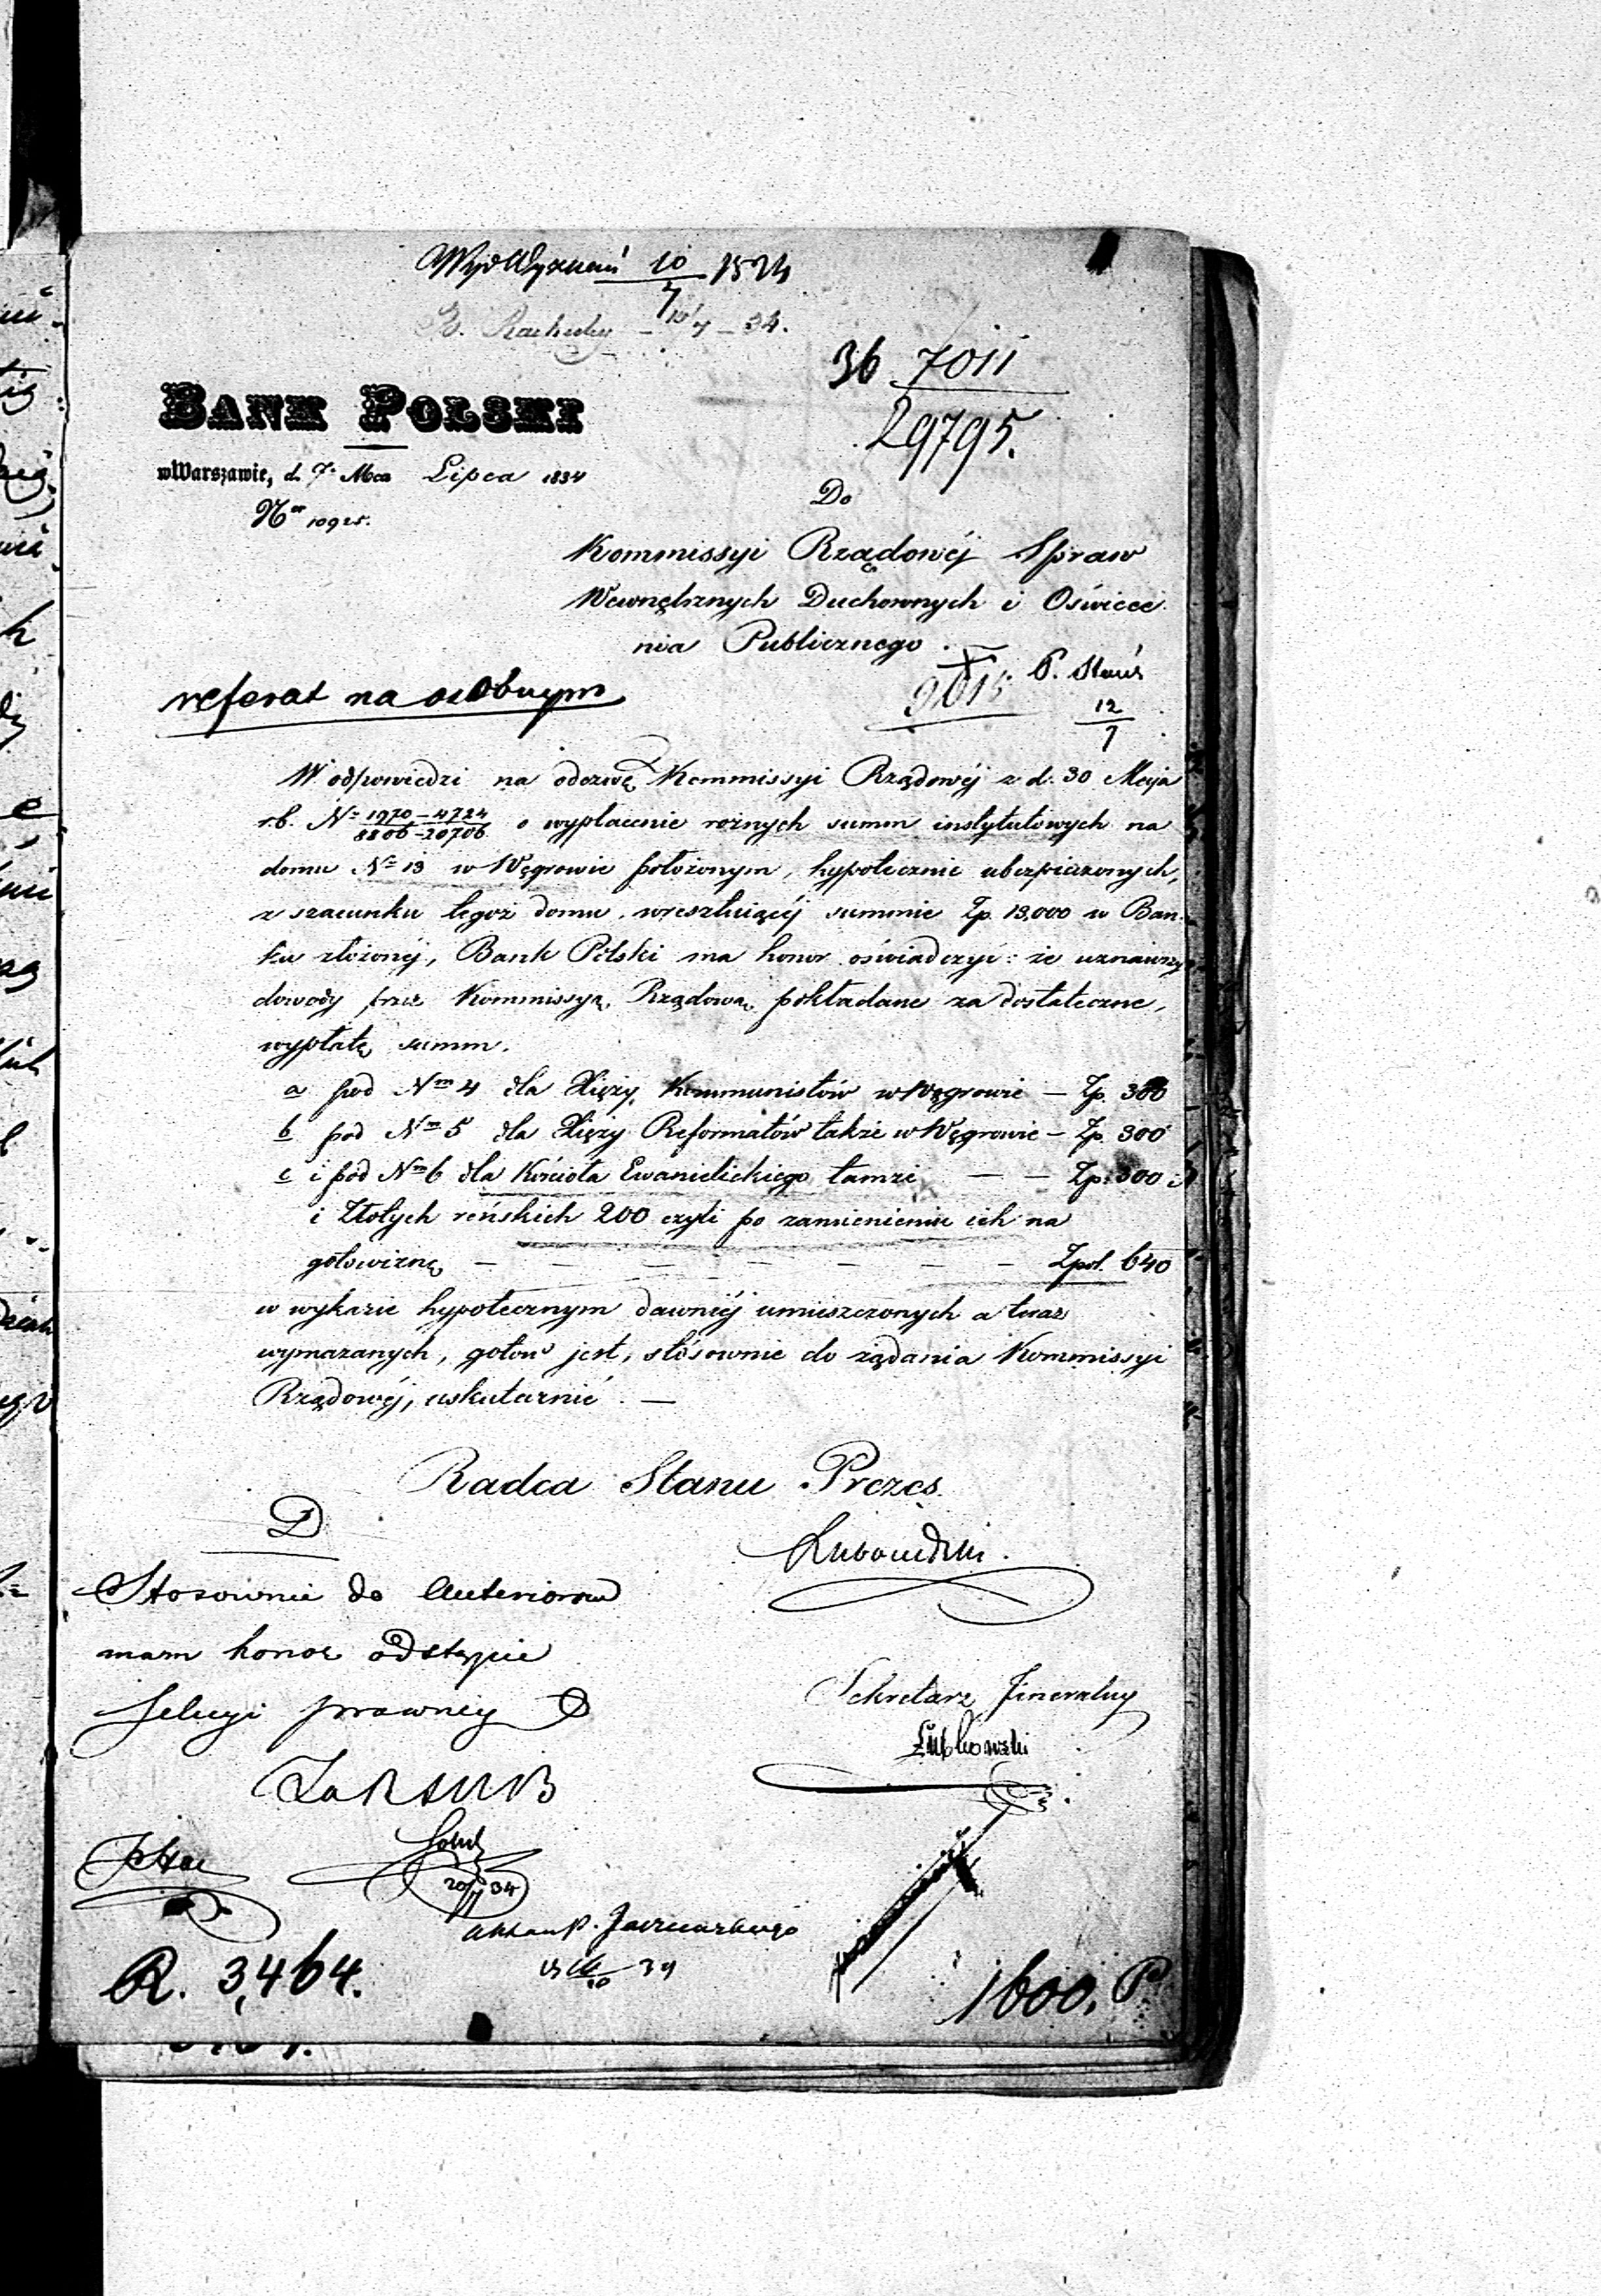 10 1834
7
10/7 – 34.
36 7011
29795.
BANK POLSKI
w Warszawie, d. 7. Mca Lipca 1834
Nor 10925.
Do
Kommissyi Rządowéj Spraw
Wewnętrznych Duchownych i Oświece
nia Publicznego. —
referat na osobnym
12
7
W odpowiedzi na odezwę Kommissyi Rządowéj z d. 30 Maja
r.b. No 1970–4724 / 8806–20706 o wypłacenie rożnych summ instytutowych na
domu No 13 w Węgrowie położonym, hypotecznie ubezpieczonych,
z szacunku tegoż domu w resztuiącéj summie Zp. 13,000 w Ban-
ku złożonéj, Bank Polski ma honor oświadczyć: że uznawszy
dowody przez Kommissyą Rządową pokładane za dostateczne,
wypłatę summ.
a pod Nrm 4 dla Xięży Kommunistów w Węgrowie — Zp. 300
b pod Nrm 5 dla Xięży Reformatów także w Węgrowie — Zp. 300
c i pod Nrm 6 dla Kościoła Ewanielickiego tamże — — Zp. 300 i
i Złotych reńskich 200 czyli po zamienieniu ich na
gotowiznę — — — — — — — Zpol. 640
w wykazie hypotecznym dawniéj umieszczonych a teraz
wymazanych, gotow jest, stósownie do żądania Kommissyi
Rządowéj, uskutecznić. —
Radca Stanu Prezes
D
Lubowidzki.
Stosownie do
mam honor odstąpić
Sekcyi prawney
Sekretarz Jeneralny
Łubkowski
20/7 34
R. 3,464.
1600. P